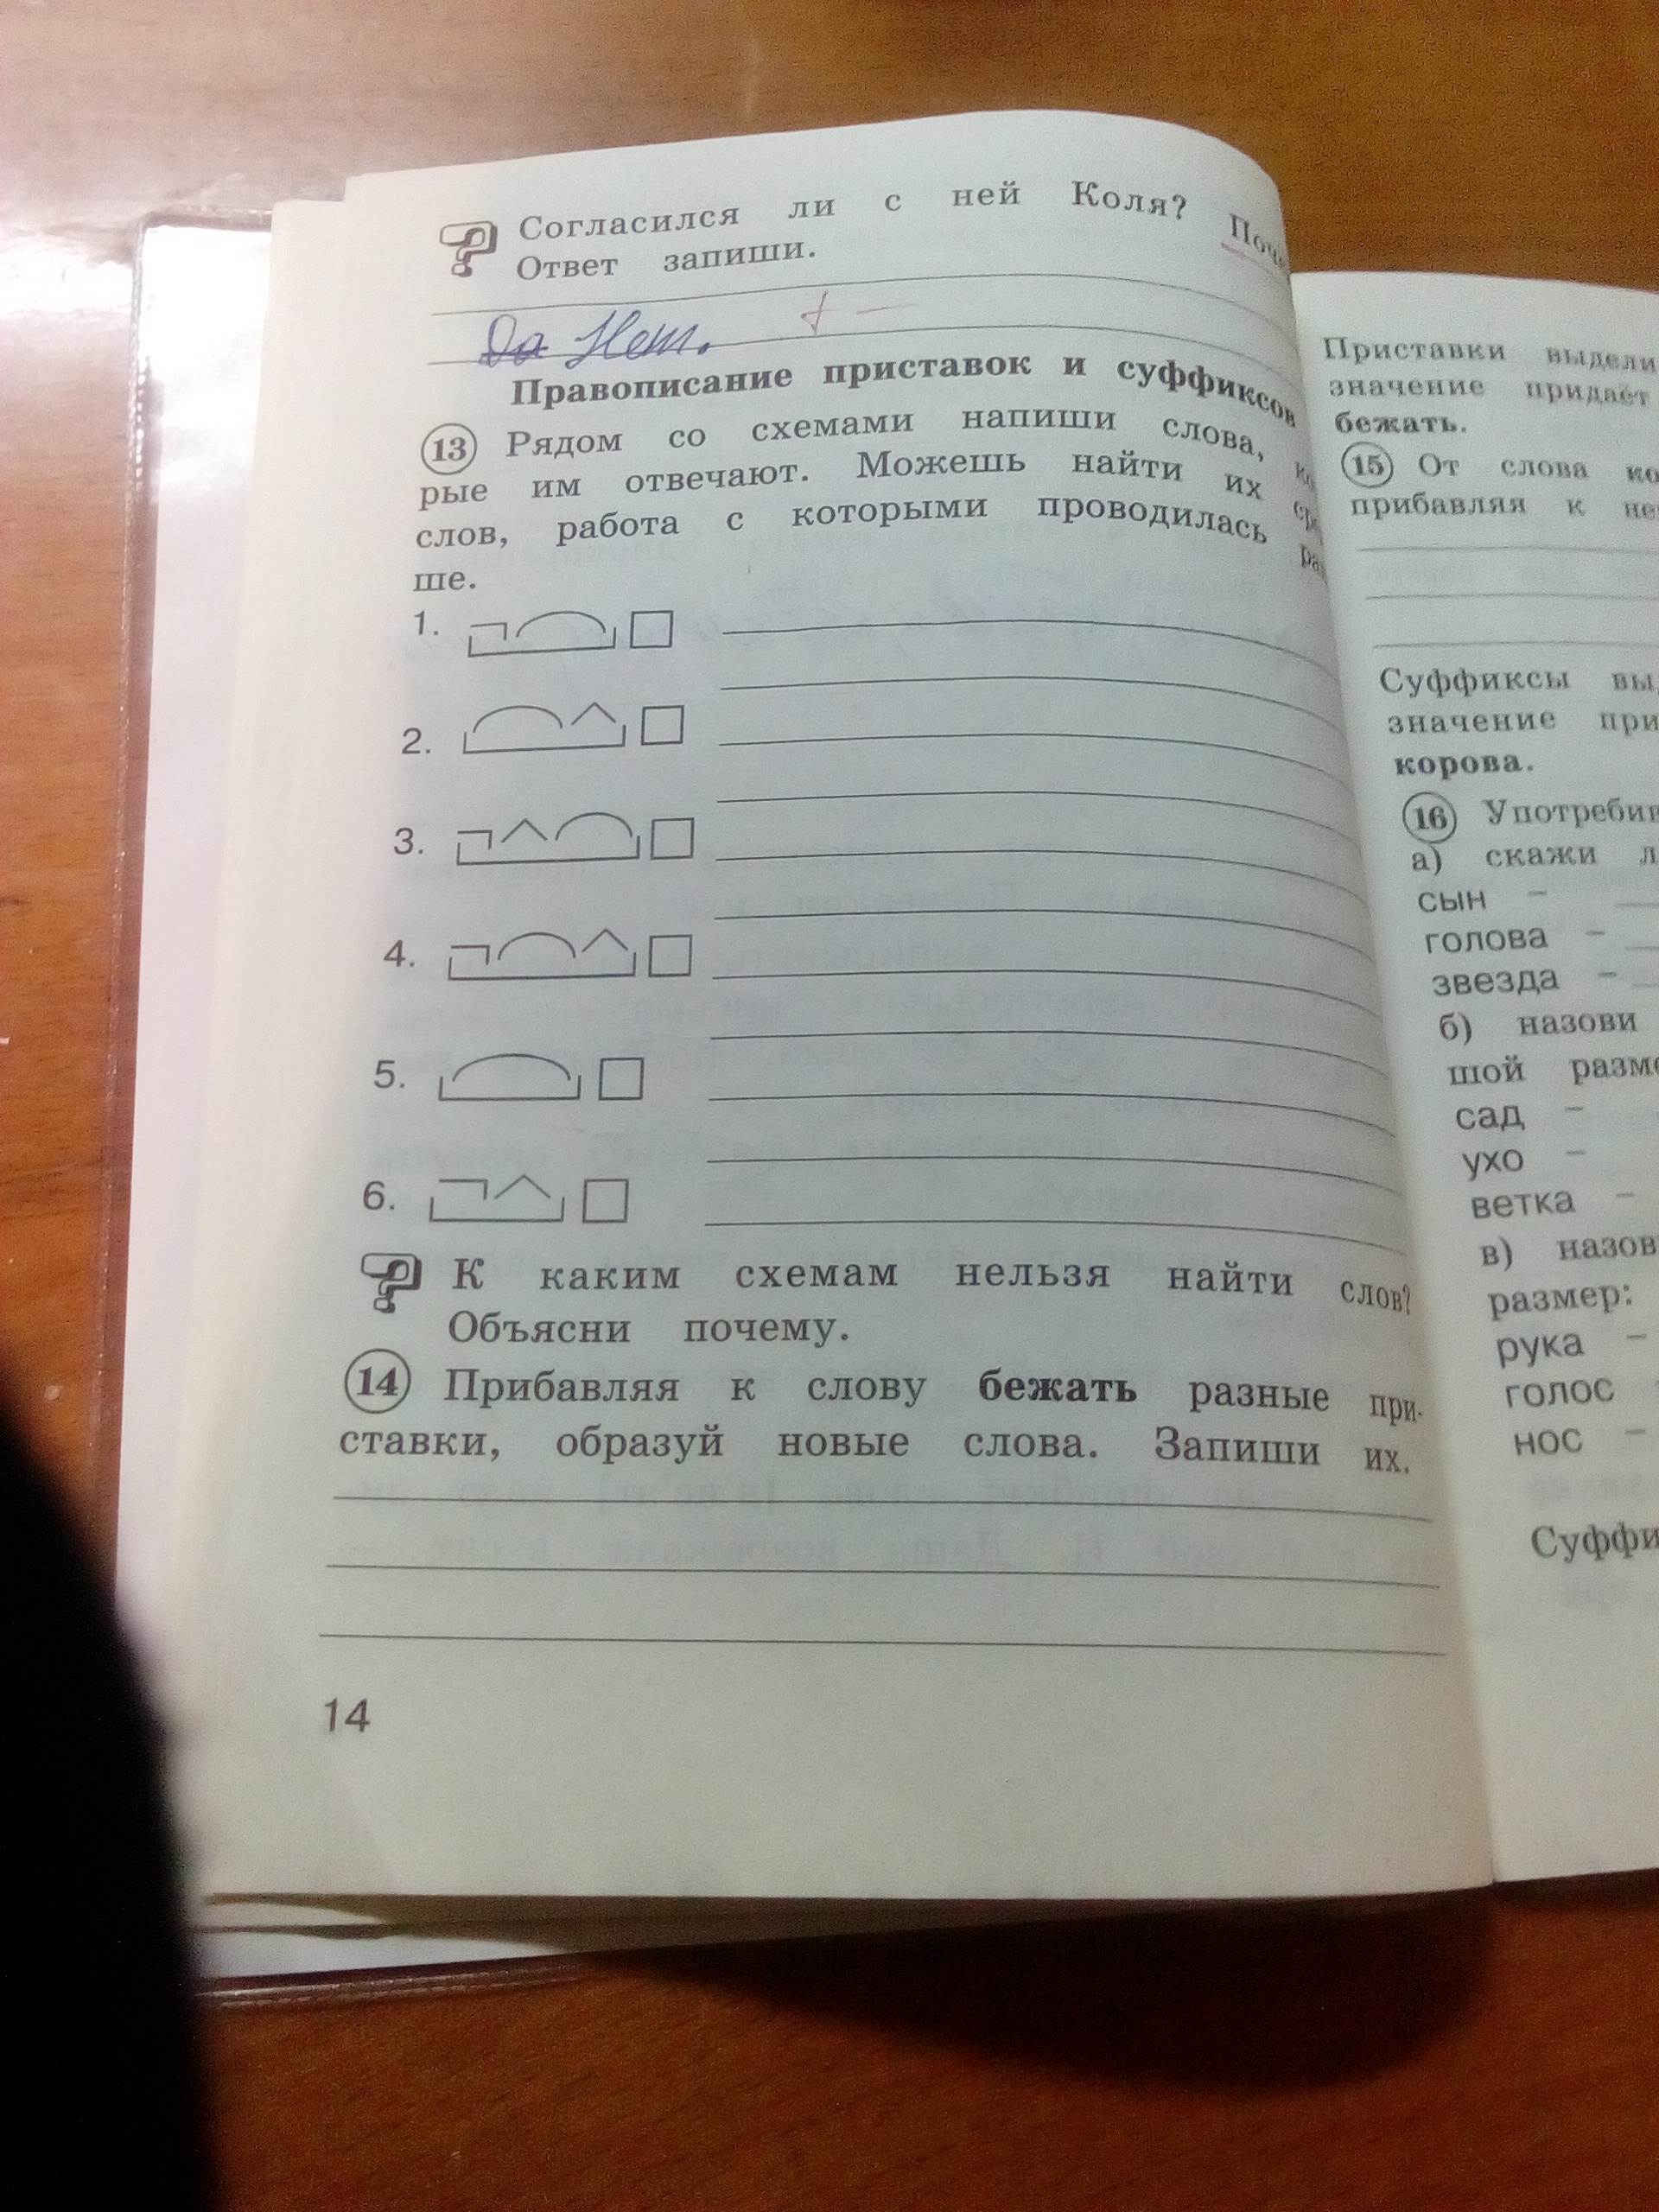 Согласился ли с ней Коля?
Ответ запиши.
Да Нет. + —
Правописание приставок и суффиксов
13 Рядом со схемами напиши слова,
рые им отвечают. Можешь найти их
слов, работа с которыми проводилась
ше.
1.
2.
3.
4.
5.
6.
К каким схемам нельзя найти слов?
Объясни почему.
14 Прибавляя к слову бежать разные при-
ставки, образуй новые слова. Запиши их.
14
Приставки выдели
значение придаёт
бежать.
15 От слова
прибавляя к
Суффиксы
значение
корова.
16
а) скажи
сын –
голова –
звезда –
б) назови
шой
сад –
ухо –
ветка –
в)
размер:
рука –
голос
нос –